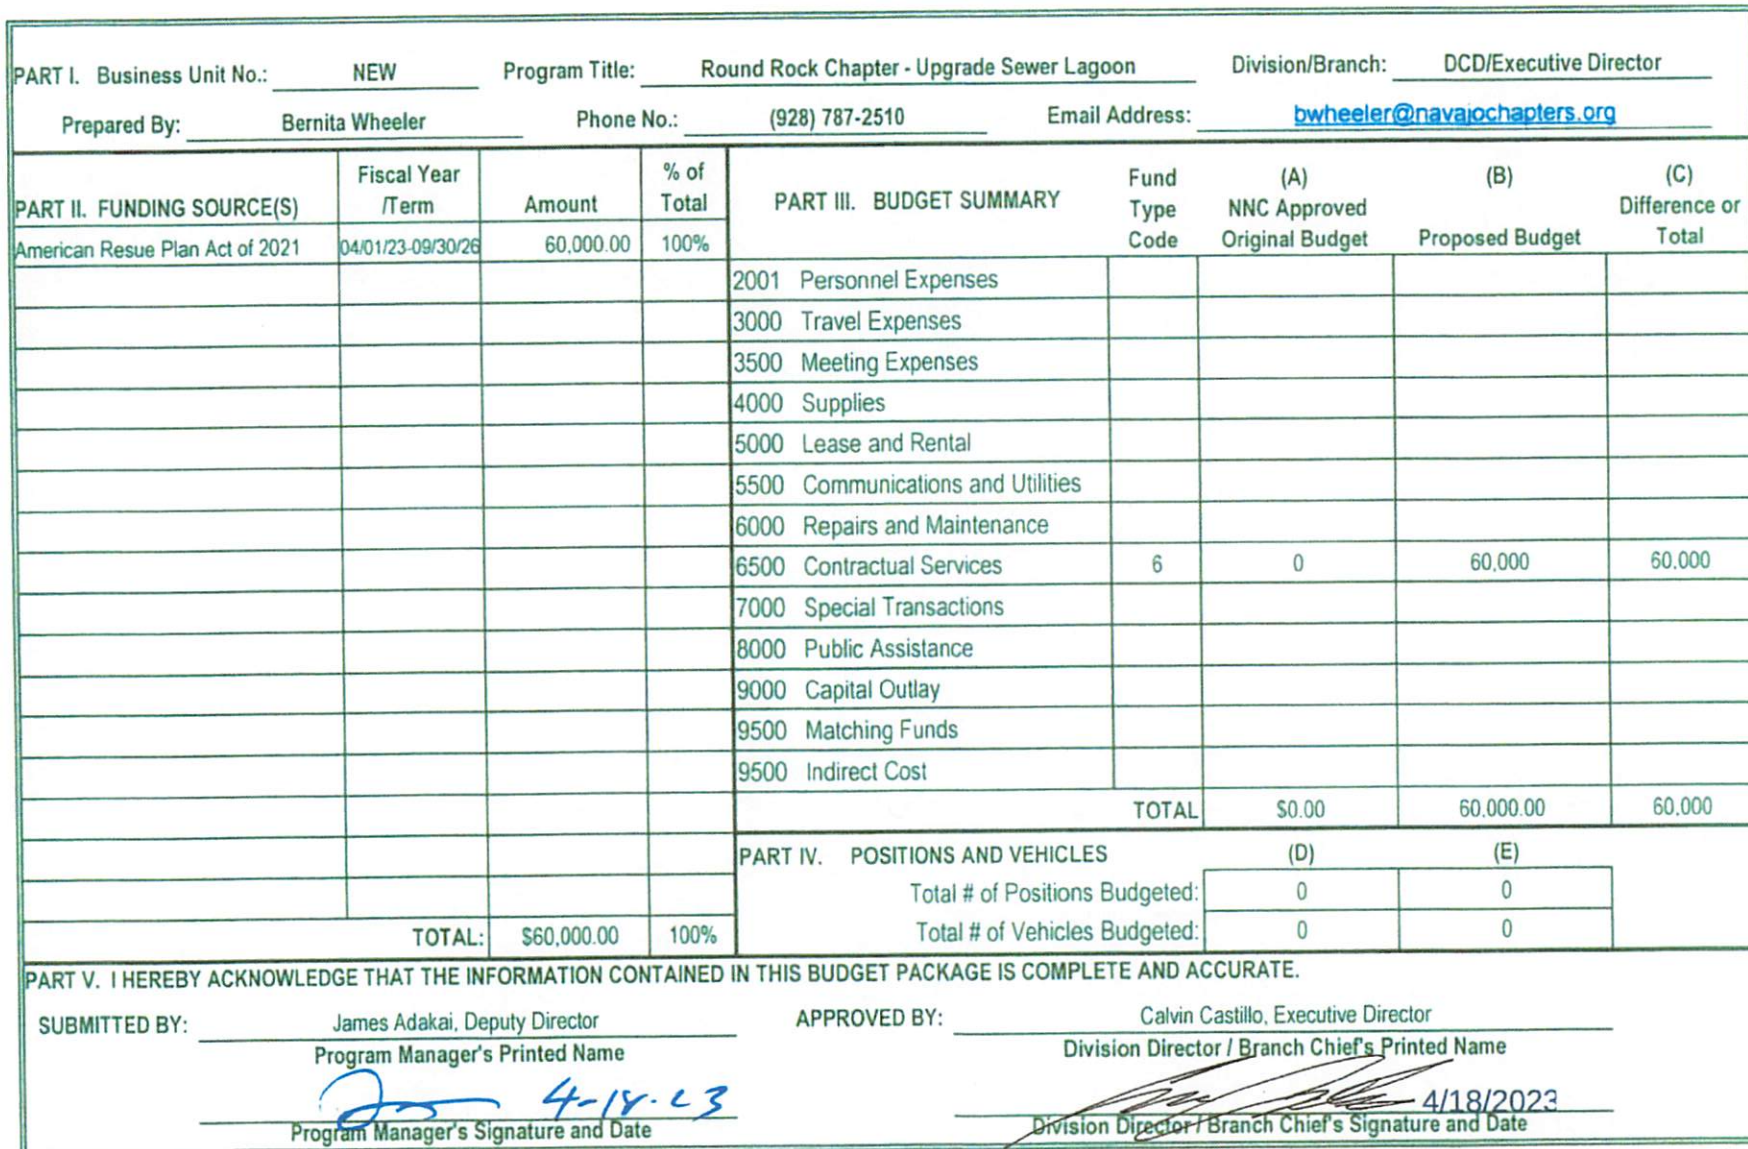 PART I. Business Unit No.: NEW Program Title: Round Rock Chapter - Upgrade Sewer Lagoon Division/Branch: DCD/Executive Director
Prepared By: Bernita Wheeler Phone No.: (928) 787-2510 Email Address: bwheeler@navajochapters.org
PART II. FUNDING SOURCE(S) Fiscal Year /Term Amount % of Total
American Resue Plan Act of 2021 04/01/23-09/30/26 60,000.00 100%
TOTAL: $60,000.00 100%
PART III. BUDGET SUMMARY Fund Type Code (A) NNC Approved Original Budget (B) Proposed Budget (C) Difference or Total
2001 Personnel Expenses
3000 Travel Expenses
3500 Meeting Expenses
4000 Supplies
5000 Lease and Rental
5500 Communications and Utilities
6000 Repairs and Maintenance
6500 Contractual Services 6 0 60,000 60.000
7000 Special Transactions
8000 Public Assistance
9000 Capital Outlay
9500 Matching Funds
9500 Indirect Cost
TOTAL $0.00 60,000.00 60,000
PART IV. POSITIONS AND VEHICLES (D) (E)
Total # of Positions Budgeted: 0 0
Total # of Vehicles Budgeted: 0 0
PART V. I HEREBY ACKNOWLEDGE THAT THE INFORMATION CONTAINED IN THIS BUDGET PACKAGE IS COMPLETE AND ACCURATE.
SUBMITTED BY: James Adakai, Deputy Director APPROVED BY: Calvin Castillo, Executive Director
Program Manager's Printed Name Division Director / Branch Chief's Printed Name
4-18-23 4/18/2023
Program Manager's Signature and Date Division Director / Branch Chief's Signature and Date